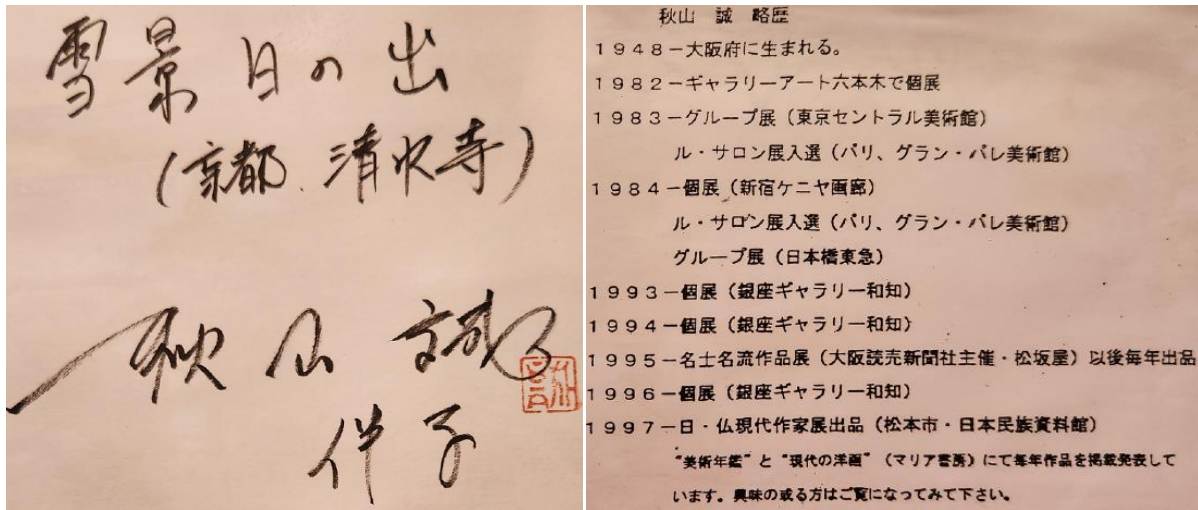 雪景日の出
(京都、清水寺)
秋山 誠
伴子
秋山 誠 略歴
1948-大阪府に生まれる。
1982-ギャラリーアート六本木で個展
1983-グループ展(東京セントラル美術館)
ル・サロン展入選(パリ、グラン・パレ美術館)
1984-個展(新宿ケニヤ画廊)
ル・サロン展入選(パリ、グラン・パレ美術館)
グループ展(日本橋東急)
1993-個展(銀座ギャラリー和知)
1994-個展(銀座ギャラリー和知)
1995-名士名流作品展(大阪読売新聞社主催・松坂屋)以後毎年出品
1996-個展(銀座ギャラリー和知)
1997-日・仏現代作家展出品(松本市・日本民族資料館)
“美術年鑑”と“現代の洋画”(マリア書房)にて毎年作品を掲載発表して
います。興味の或る方はご覧になってみて下さい。